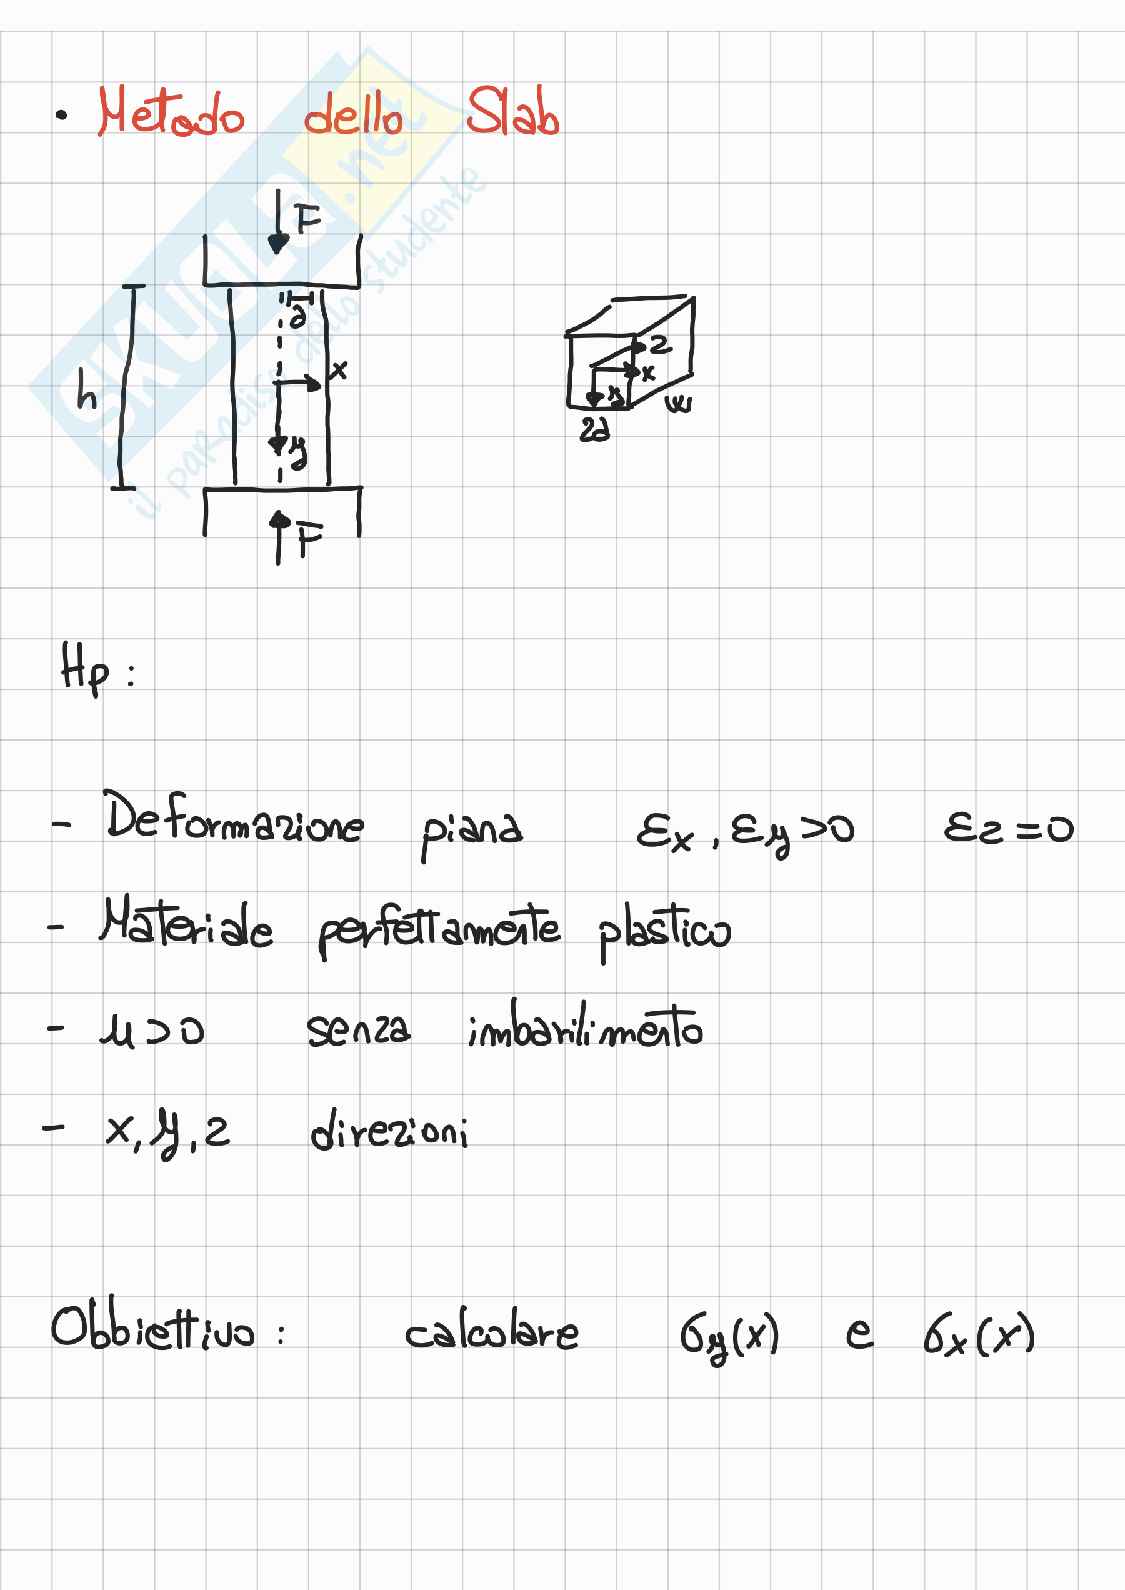 • Metodo dello Slab
SKUOLA.net
il paradiso dello studente
F
a
h
x
y
F
z
x
y
w
2a
Hp:
- Deformazione piana εx, εy>0 εz=0
- Materiale perfettamente plastico
- μ>0 senza imbarilimento
- x, y, z direzioni
Obbiettivo: calcolare σy(x) e σx(x)